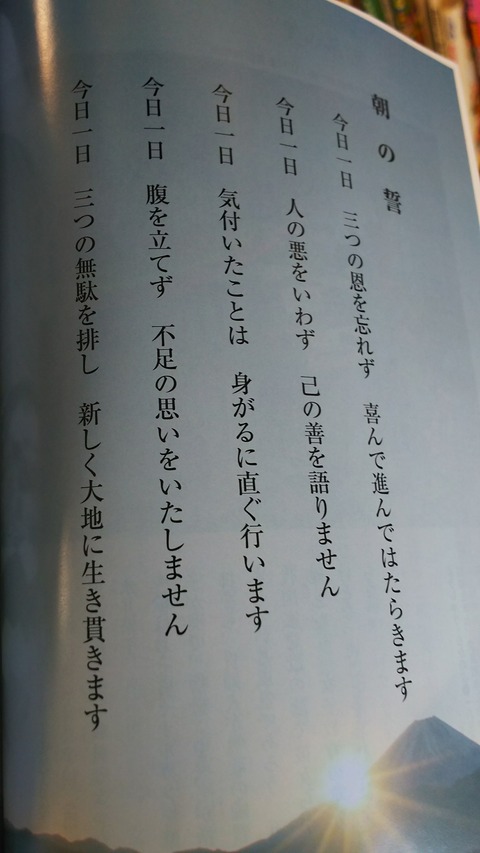 朝の誓
今日一日 三つの恩を忘れず 喜んで進んではたらきます
今日一日 人の悪をいわず 己の善を語りません
今日一日 気付いたことは 身がるに直ぐ行います
今日一日 腹を立てず 不足の思いをいたしません
今日一日 三つの無駄を排し 新しく大地に生き貫きます